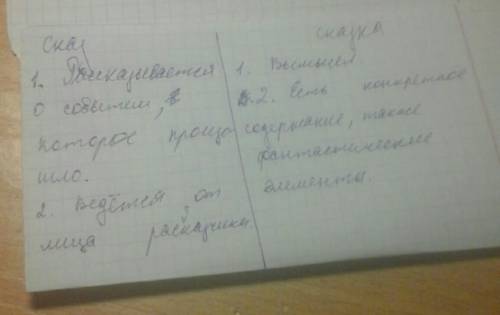 сказ
1. Рассказывается
о событем,
которое произо-
шло.
2. Ведётся от
лица расказчика.
сказка
1. Вымысел
2. Есть конкретное
содержание, также
фантастические
элементы.